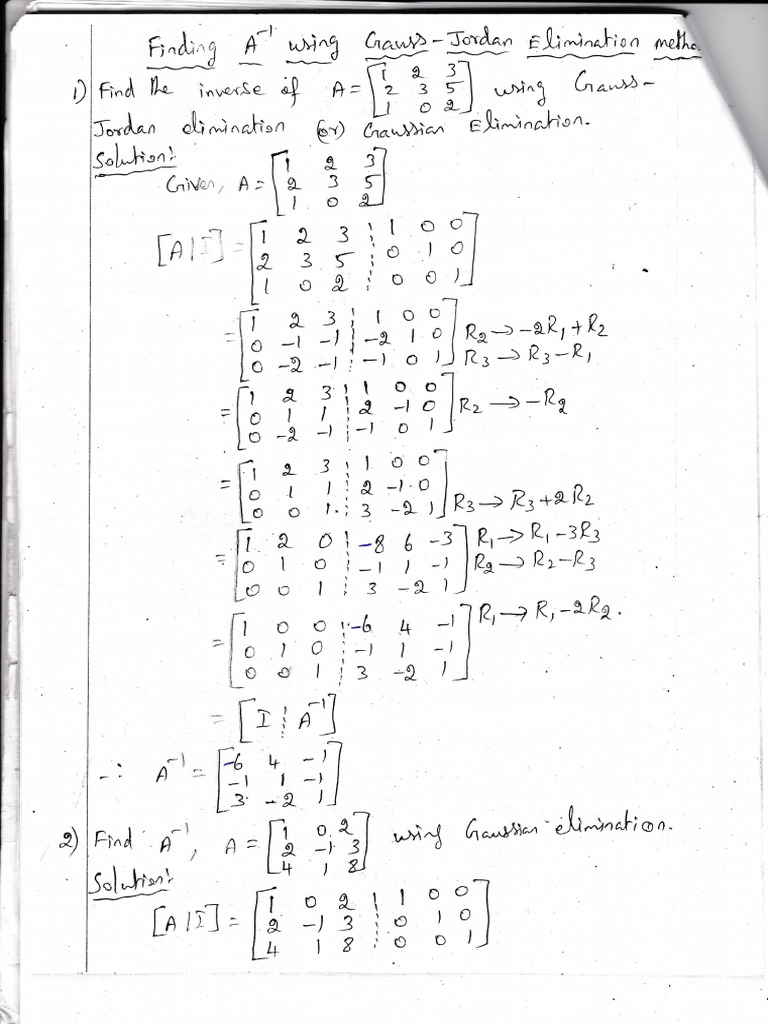 Finding A⁻¹ using Gauss-Jordan Elimination
1) Find the inverse of A = [1 2 3; 2 3 5; 1 0 2] using Gauss-
Jordan elimination (or) Gaussian Elimination.
Solution:
Given, A = [1 2 3; 2 3 5; 1 0 2]
[A|I] = [1 2 3 ¦ 1 0 0; 2 3 5 ¦ 0 1 0; 1 0 2 ¦ 0 0 1]
= [1 2 3 ¦ 1 0 0; 0 -1 -1 ¦ -2 1 0; 0 -2 -1 ¦ -1 0 1] R₂ → -2R₁+R₂ R₃ → R₃-R₁
= [1 2 3 ¦ 1 0 0; 0 1 1 ¦ 2 -1 0; 0 -2 -1 ¦ -1 0 1] R₂ → -R₂
= [1 2 3 ¦ 1 0 0; 0 1 1 ¦ 2 -1 0; 0 0 1 ¦ 3 -2 1] R₃ → R₃+2R₂
= [1 2 0 ¦ -8 6 -3; 0 1 0 ¦ -1 1 -1; 0 0 1 ¦ 3 -2 1] R₁ → R₁-3R₃ R₂ → R₂-R₃
= [1 0 0 ¦ -6 4 -1; 0 1 0 ¦ -1 1 -1; 0 0 1 ¦ 3 -2 1] R₁ → R₁-2R₂.
= [I ¦ A⁻¹]
∴ A⁻¹ = [-6 4 -1; -1 1 -1; 3 -2 1]
2) Find A⁻¹, A = [1 0 2; 2 -1 3; 4 1 8] using Gaussian elimination.
Solution:
[A|I] = [1 0 2 ¦ 1 0 0; 2 -1 3 ¦ 0 1 0; 4 1 8 ¦ 0 0 1]